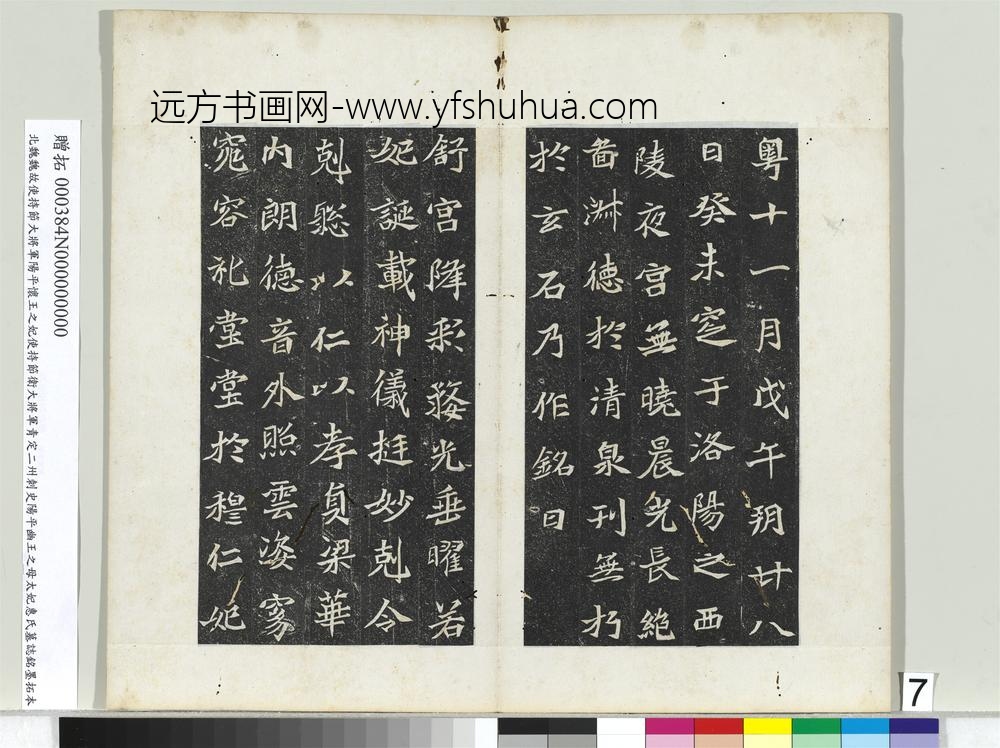 远方书画网-www.yfshuhua.com
粤十一月戊午朔廿八
日癸未窆于洛陽之西
陵夜宫無曉晨光長絕
啚淑德於清泉刊無朽
於玄石乃作銘曰
舒宫降彩婺光垂曜若
妃誕載神儀挺妙剋令
剋聡以仁以孝梁華
内朗德音外照雲姿窈
窕容礼堂堂於穆仁妃
贈拓 000384N000000000
北魏魏故使持節大將軍陽平懷王之妃使持節衛大將軍青定二州刺史陽平幽王之母太妃惠氏墓誌銘墨拓本
7